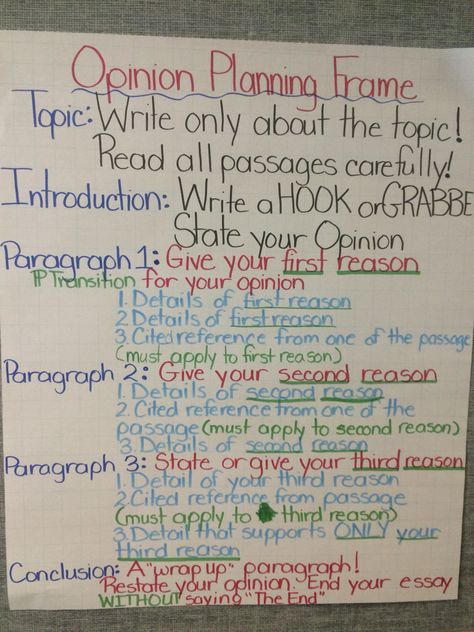 Opinion Planning Frame
Topic: Write only about the topic!
Read all passages carefully!
Introduction: Write a HOOK or GRABBE
State your Opinion
Paragraph 1: Give your first reason
Transition for your opinion
1. Details of first reason
2. Details of first reason
3. Cited reference from one of the passage
(must apply to first reason)
Paragraph 2: Give your second reason
1. Details of second reason
2. Cited reference from one of the
passage (must apply to second reason)
3. Details of second reason
Paragraph 3: State or give your third reason
1. Detail of your third reason
2. Cited reference from passage
(must apply to third reason)
3. Detail that supports ONLY your
third reason
Conclusion: A "wrap up" paragraph!
Restate your opinion. End your essay
WITHOUT saying "The End"